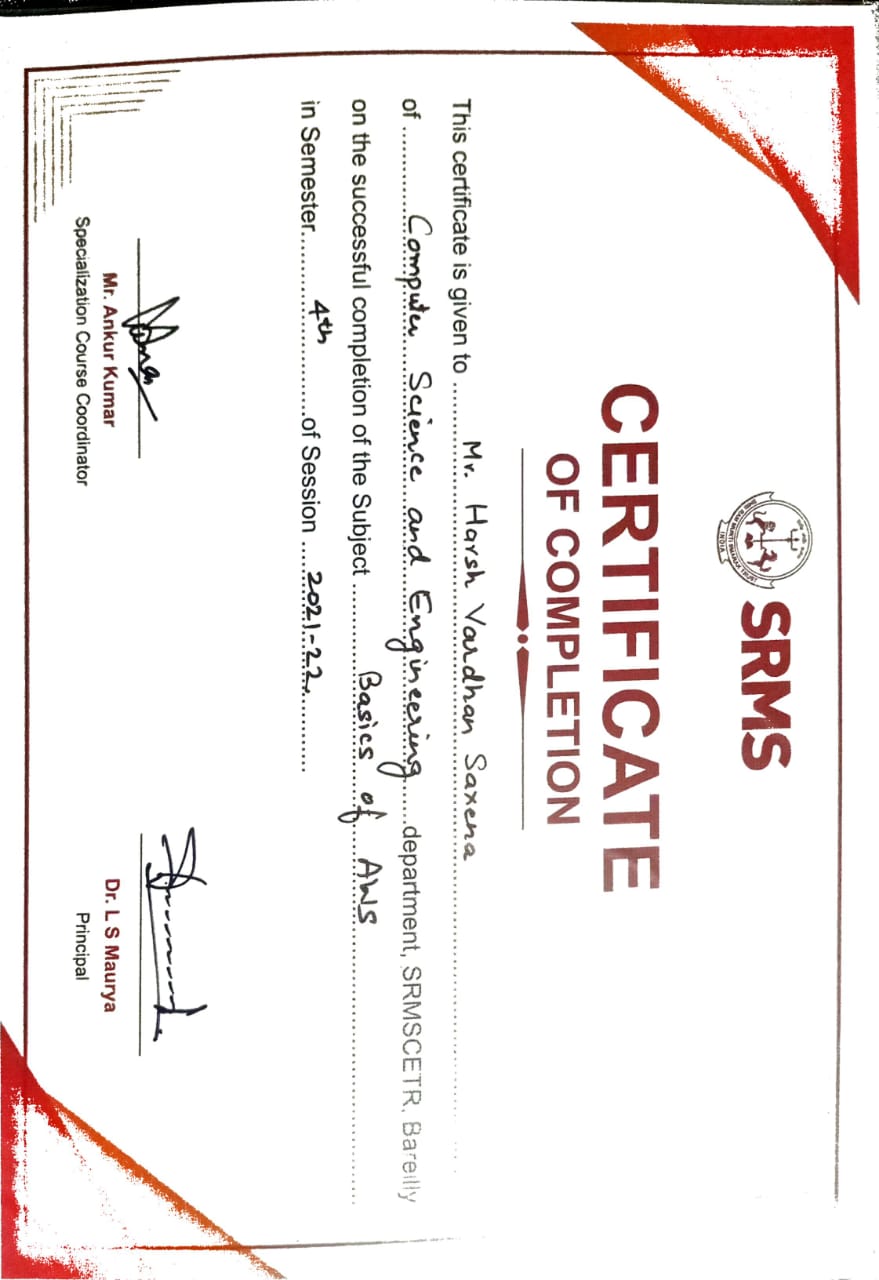 SHRI RAM MURTI SMARAK TRUST
INDIA
SRMS
CERTIFICATE
OF COMPLETION
This certificate is given to ..... Mr. Harsh Vardhan Saxena .....
of ..... Computer Science and Engineering ..... department, SRMSCETR, Bareilly
on the successful completion of the Subject ..... Basics of AWS .....
in Semester ..... 4th ..... of Session ..... 2021-22 .....
Mr. Ankur Kumar
Specialization Course Coordinator
Dr. L S Maurya
Principal